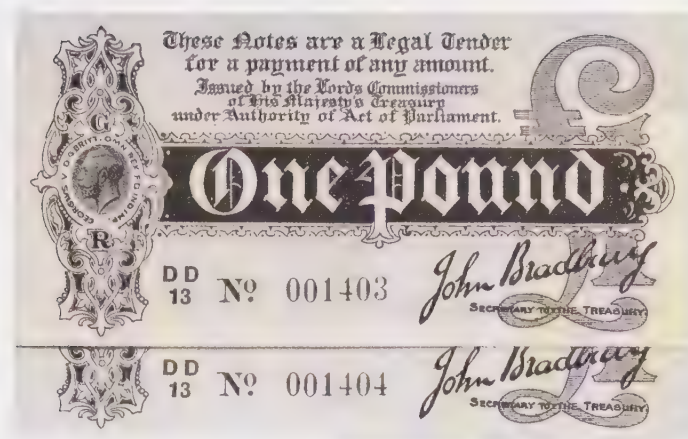 These Notes are a Legal Tender
for a payment of any amount.
Issued by the Lords Commissioners
of His Majesty's Treasury
under Authority of Act of Parliament.
£
One Pound
G
GEORGIUS V D.G. BRITT. OMN. REX F.D. IND. IMP.
R
DD
13 No 001403
John Bradbury
£1
SECRETARY TO THE TREASURY.
DD
13 No 001404
John Bradbury
£1
SECRETARY TO THE TREASURY.